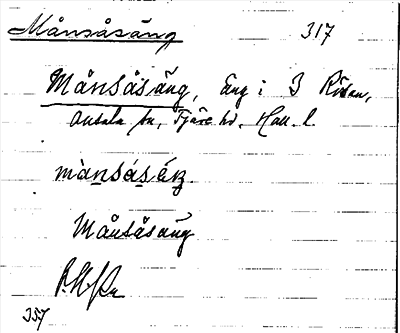 Månsåsäng 317
Månsåsäng, Äng i 3 Rösan,
Onsala sn, Fjäre hd. Hall. l.
mànsáséŋ.
Månsåsäng
357